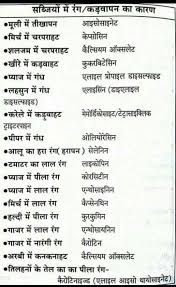 सब्जियों में रंग/कड़वापन का कारण
•मूली में तीखापन आइसोसाइनेट
•मिर्च में चरपराहट केप्सेसिन
•शलजम में चरपराहट कैल्सियम ऑक्सलेट
•खीरे में कड़वाहट कुकरबिटेसिन
•प्याज में गंध एलाइल प्रोपाइल डाइसल्फाइड
•लहसुन में गंध एलाइसिन (डाइलाइल
डाइसल्फाइड)
•करेले में कड़वाहट मेमोर्डिकोसाइट/टेट्रासाइक्लिक
ट्राइटरपाइन
•पीपर में गंध ओलियोरेसिन
•आलू का हरा रंग (हरापन) सेलेनिन
•टमाटर का लाल रंग लाइकोपिन
•प्याज में पीला रंग क्वेरसिटीन
•प्याज में लाल रंग एन्थोसाइनिन
•मिर्च में लाल रंग कैप्सेनथिन
•हल्दी में पीला रंग कुरकुमिन
•गाजर में लाल रंग एन्थोसायनिन
•गाजर में नारंगी रंग कैरोटिन
•अरबी में कनकनाहट कैल्सियम ऑक्सलेट
•तिलहनों के तेल का का पीला रंग-
कैरोटिनाइड्ज (एलाइल आइसो थायोसिनेट)